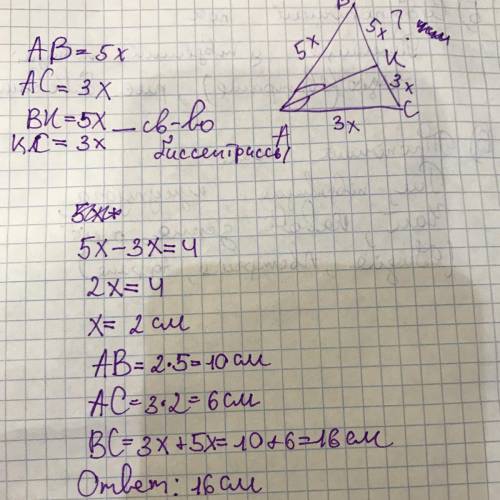 B
5x ? 4см
5x
K
3x
A
C
3x
AB = 5x
AC = 3x
BK = 5x — св-во
KC = 3x биссектриссы
5x - 3x = 4
2x = 4
x = 2 см
AB = 2•5 = 10 см
AC = 3•2 = 6 см
BC = 3x + 5x = 10 + 6 = 16 см
Ответ: 16 см